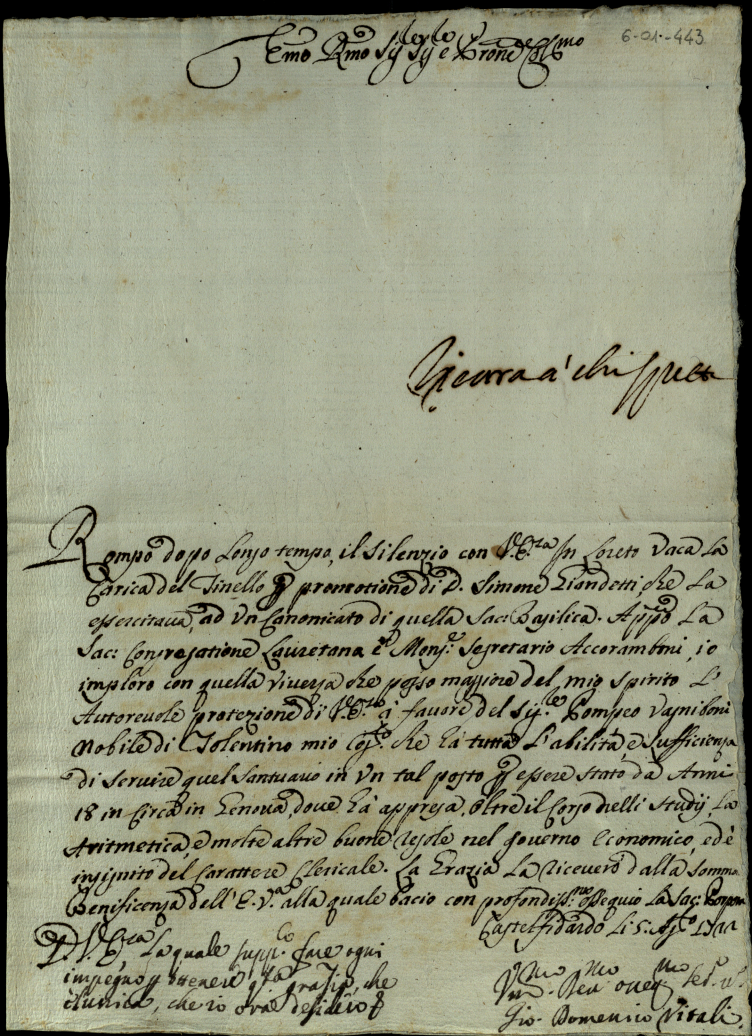 6-01-443
Emo Rmo Sig.re Sig.re e Prone
Ricorra à chi spetta
Rompo dopo longo tempo, il silenzio con V.Em.za In Loreto vaca la
Carica del Tinello p promotione di D. Simone che la
essercitaua, ad vn Canonicato di quella Sac: Basilica. Appo la
Sac: Congregatione Lauretana e Monsr. Segretario Accoramboni, io
imploro con quella viuezza che posso maggiore del mio spirito L'
Autoreuole protezione di V.Em.za à fauore del Sig.re Pompeo
Nobile di Tolentino mio che hà tutta L'abilità, e sufficienza
di seruire quel Santuario in vn tal posto p essere stato da Anni
18 in Circa in Genoua, doue hà appresa, oltre il Corso delli Studij, La
Aritmetica, e molte altre buone regole nel gouerno economico, ed è
insignito del Carattere Clericale. La Grazia La riceuerò dalla somma
Benificenza dell'E.V.a alla quale bacio con profondiss.mo ossequio La Sac: Porpora
Castelfidardo Li 5: Ag.o
D.V.Em.za La quale supp.co fare ogni
impegno p ottenere q.ta grazia, che
è l'unica, che io ora desidero
Vmo Deu.mo
Gio. Domenico Vitali